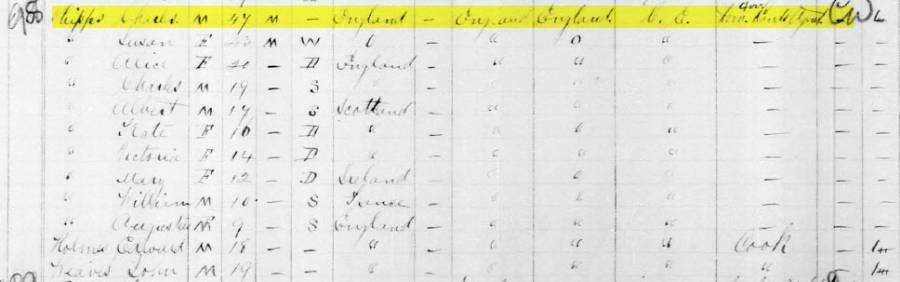 98 Phipps Charles M 47 M – England – England England C. E. Gov. Lands Agent
" Susan F M W O – " O " –
" Alice F 20 – D England – " " " – – –
" Charles M 19 – S – " – – –
" Albert M 17 – S Scotland – " " " – – –
" Kate F 16 – D " – " " " – – –
" Victoria F 14 – D " – " " " – – –
" Mary F 12 – D Ireland – " " " – – –
" William M 10 – S – " " " – – –
" Augustus M 9 – S England – " " " – – –
Holmes Edward M 18 – – " – " " " Cook –
Neaves John M 19 – – " – " " " " –